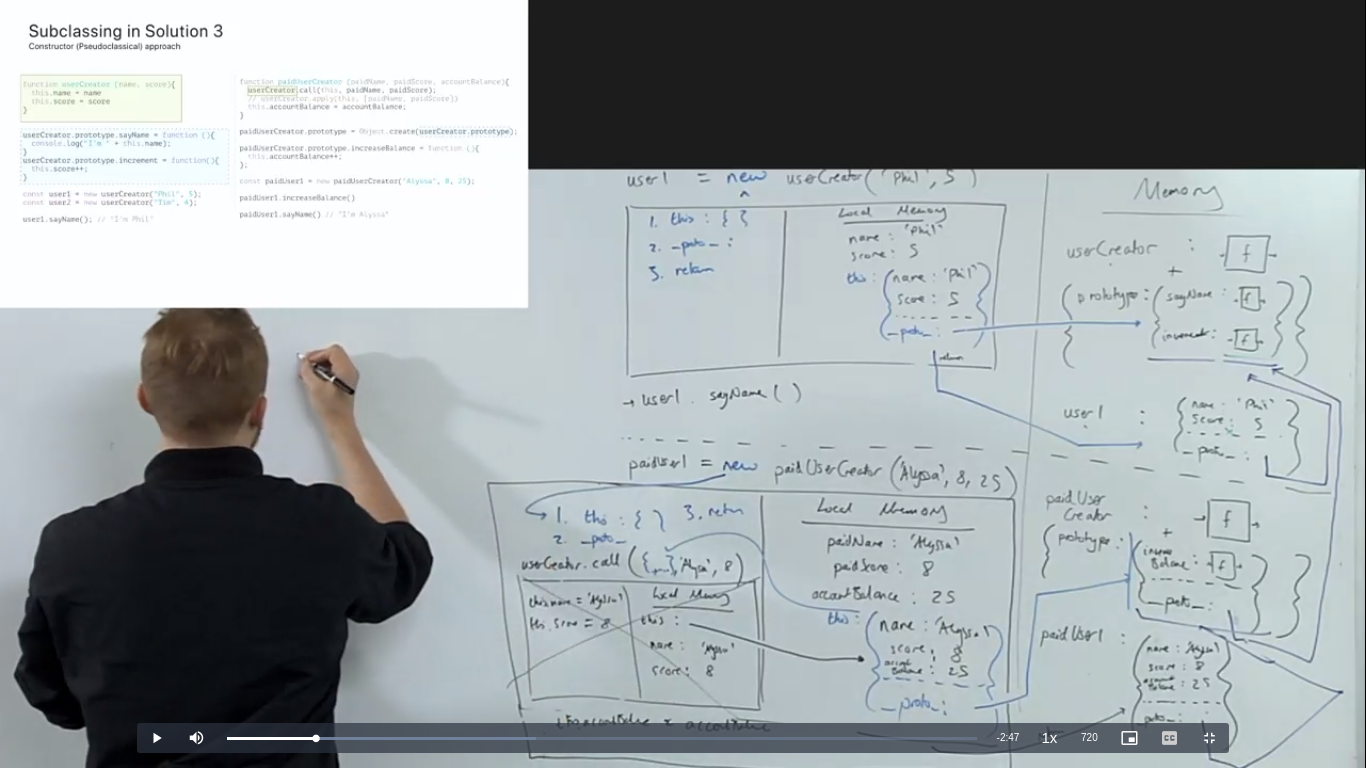 Subclassing in Solution 3
Constructor (Pseudoclassical) approach
function userCreator (name, score){
this.name = name
this.score = score
}
userCreator.prototype.sayName = function (){
console.log("I'm " + this.name);
}
userCreator.prototype.increment = function(){
this.score++;
}
const user1 = new userCreator("Phil", 5);
const user2 = new userCreator("Tim", 4);
user1.sayName(); // "I'm Phil"
function paidUserCreator (paidName, paidScore, accountBalance){
userCreator.call(this, paidName, paidScore);
// userCreator.apply(this, [paidName, paidScore])
this.accountBalance = accountBalance;
}
paidUserCreator.prototype = Object.create(userCreator.prototype);
paidUserCreator.prototype.increaseBalance = function (){
this.accountBalance++;
};
const paidUser1 = new paidUserCreator("Alyssa", 8, 25);
paidUser1.increaseBalance()
paidUser1.sayName() // "I'm Alyssa"
user1 = new userCreator('Phil', 5)
1. this : { }
2. _proto_ :
3. return
Local Memory
name : 'Phil'
score : 5
this : { name : 'Phil'
score : 5
_proto_ :
return
→ user1 . sayName ( )
paidUser1 = new paidUserCreator('Alyssa', 8, 25)
1. this : { } 3. return
2. _proto_
userCreator.call ({...}, 'Alyssa', 8)
this.name = 'Alyssa'
this.score = 8
Local Memory
this :
name : 'Alyssa'
score : 8
this.accountBalance = accountBalance
Local Memory
paidName : 'Alyssa'
paidScore : 8
accountBalance : 25
this : { name : 'Alyssa'
score : 8
Balance : 25
_proto_ :
Memory
userCreator : f
+
prototype : { sayName : f
increment : f
user1 : { name : 'Phil'
score : 5
_proto_ :
paidUser
Creator : f
+
prototype :
Balance : f
_proto_ :
paidUser1 : { name : 'Alyssa'
score : 8
Balance : 25
_proto_ :
-2:47
1x
720
CC